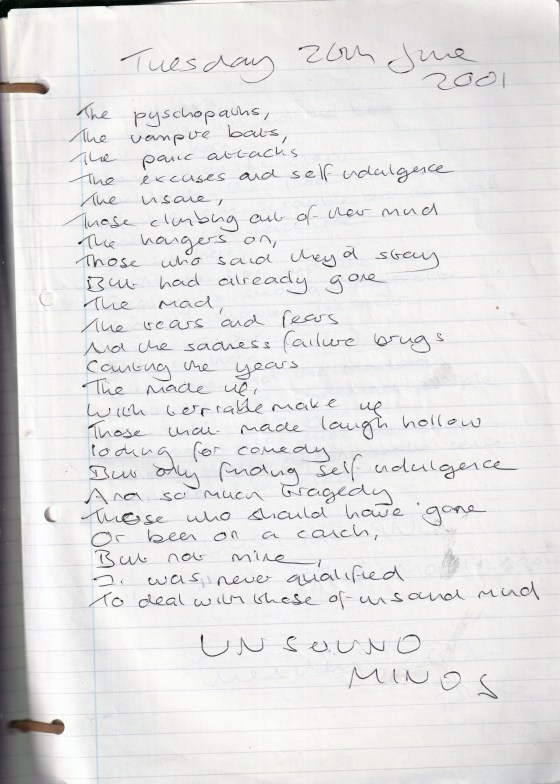 Tuesday 26th June
2001
The pyschopaths,
The vampire bats,
The panic attacks
The excuses and self indulgence
The insane,
Those climbing out of their mind
The hangers on,
Those who said they'd stay
But had already gone
The mad,
The tears and fears
And the sadness failure brings
Counting the years
The made up,
With terrible make up
Those that made laugh hollow
looking for comedy
But only finding self indulgence
And so much tragedy
Those who should have gone
Or been on a couch,
But not mine,
I was never qualified
To deal with those of unsound mind
UNSOUND
MINDS